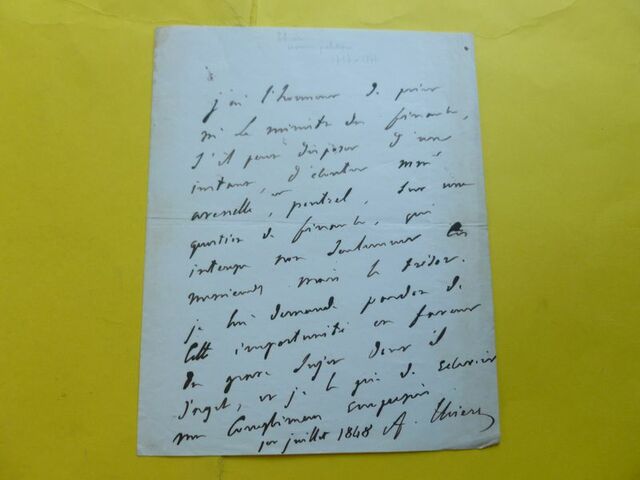 j'ai l'honneur de prier
mr le ministre des finances,
s'il peut disposer d'un
instant, d'écouter mr
et pentrel, sur une
question de finances, qui
intéresse non seulement les
mais le trésor.
je lui demande pardon de
cette importunité en faveur
du grave sujet dont il
s'agit, et je le prie de recevoir
mes compliments empressés
1er juillet 1848 A. Thiers